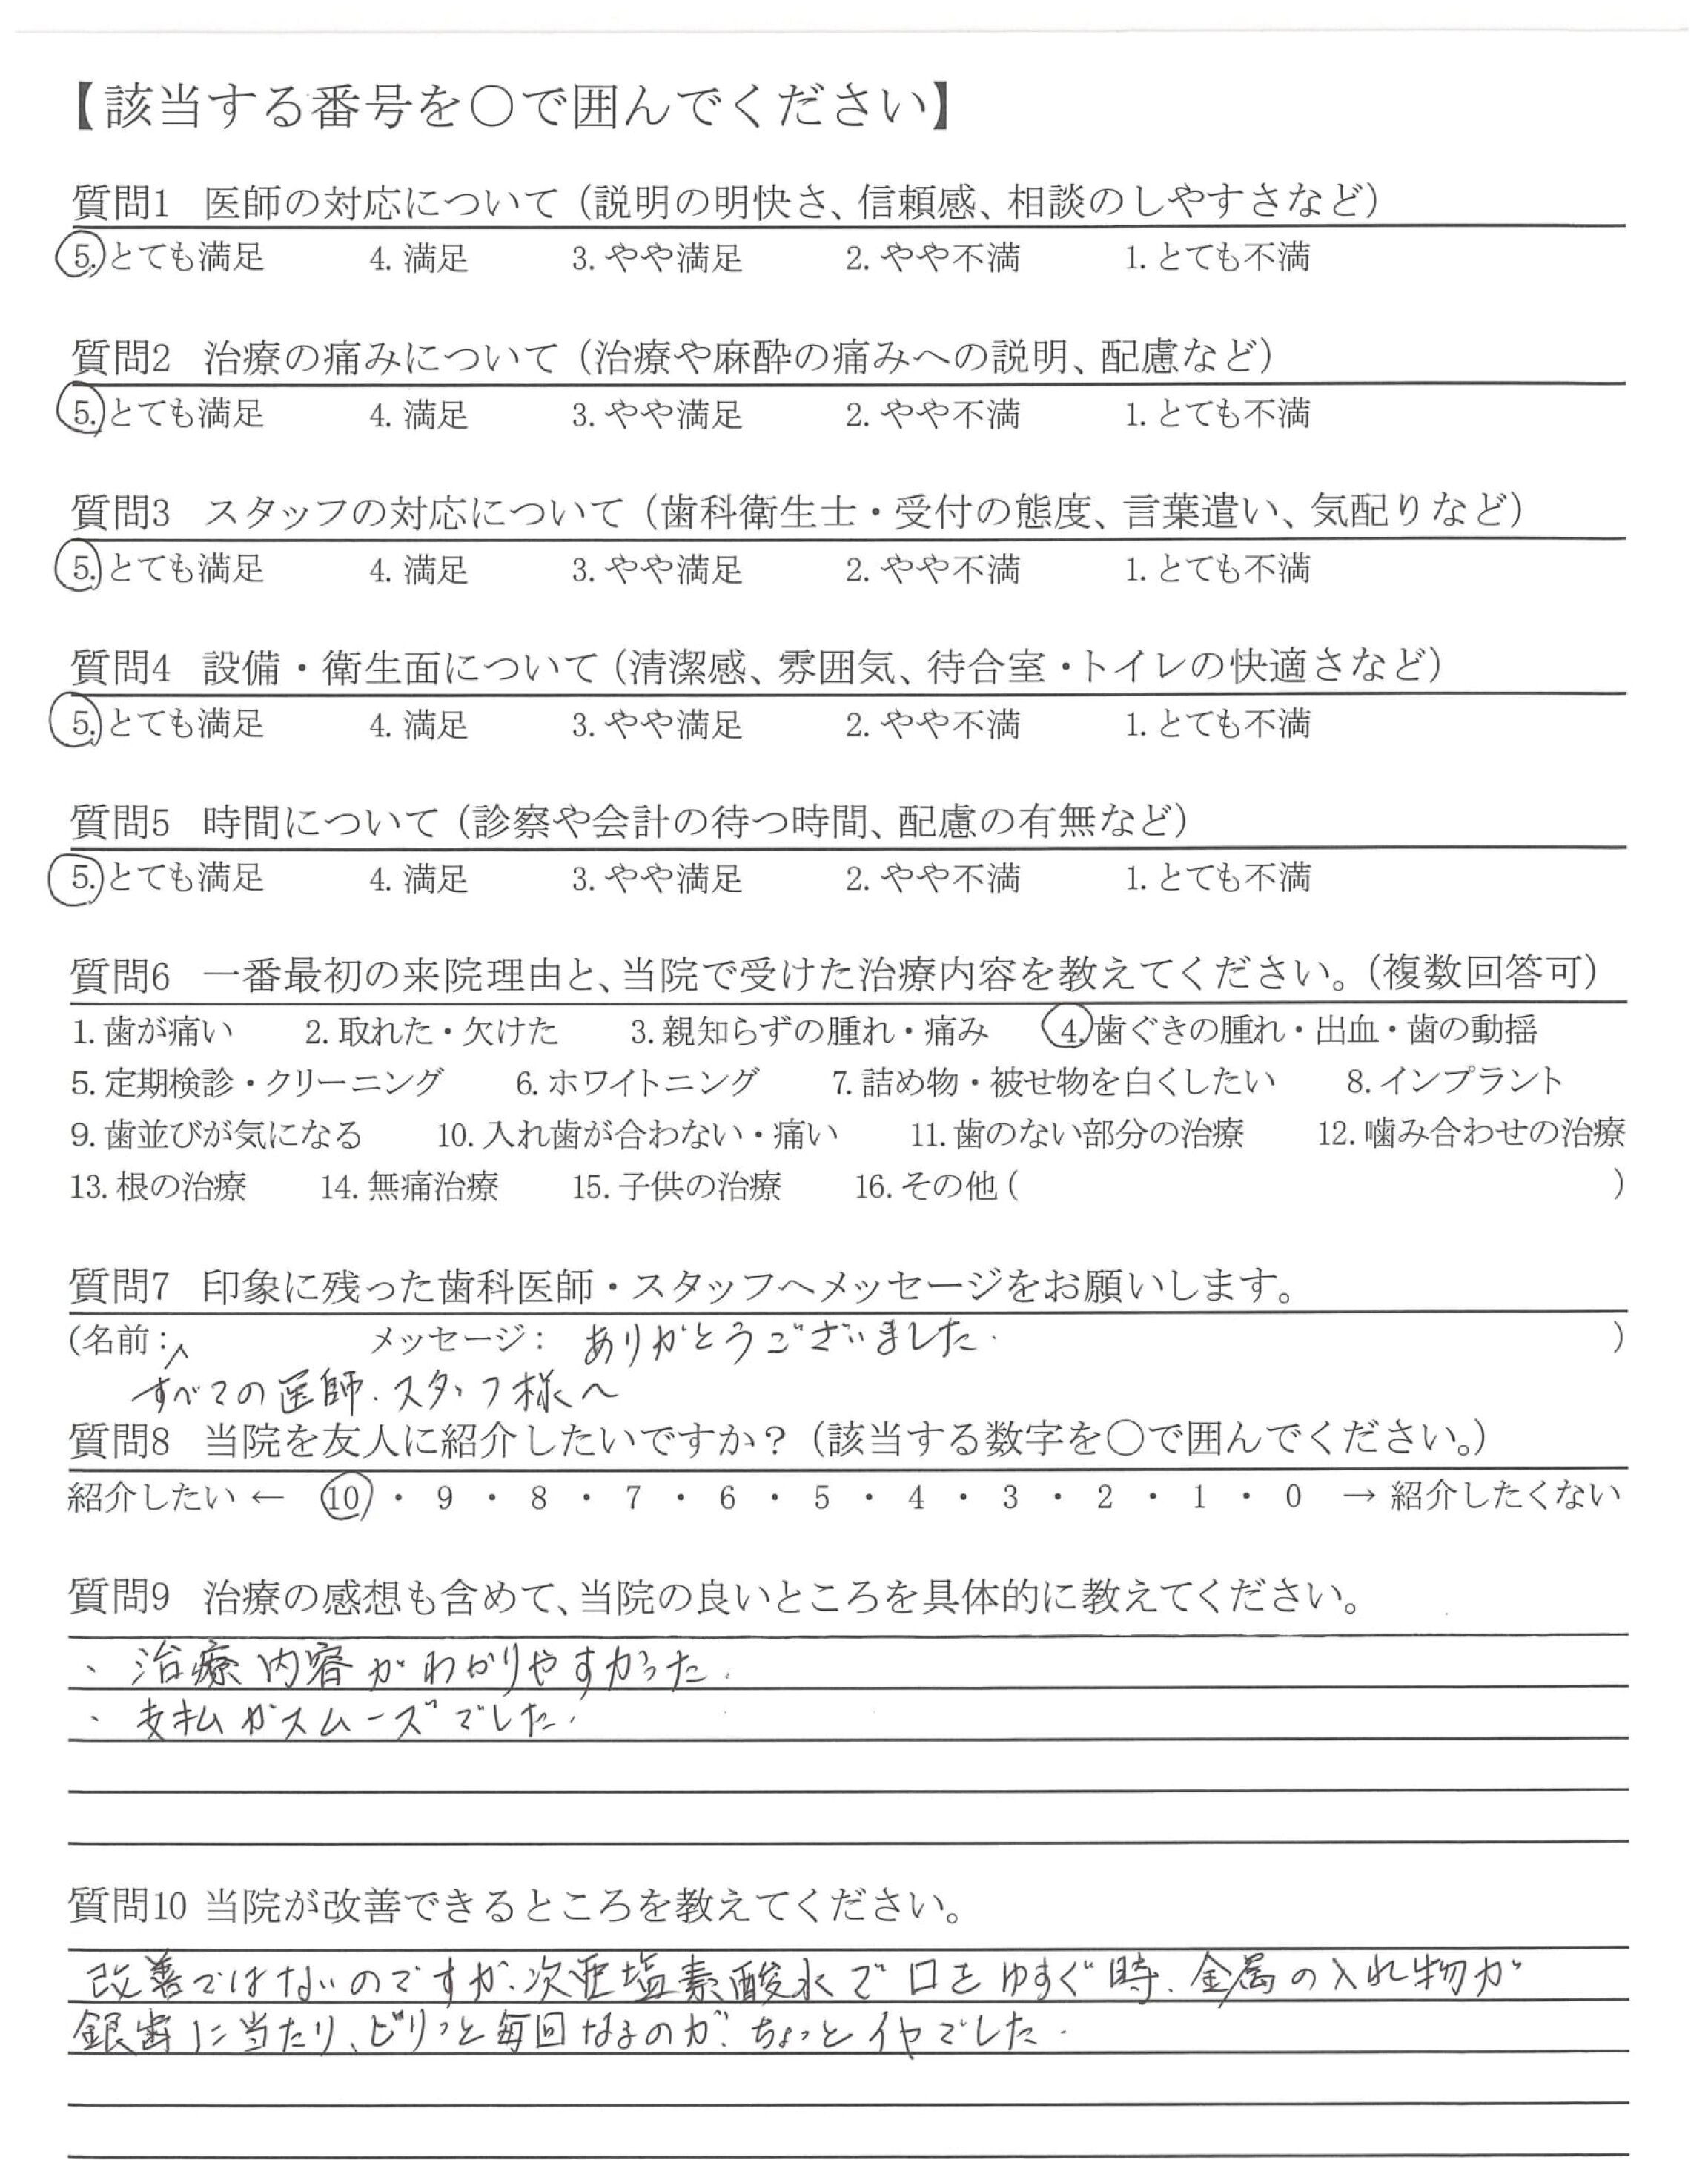 【該当する番号を○で囲んでください】
質問1 医師の対応について（説明の明快さ、信頼感、相談のしやすさなど）
5. とても満足 4. 満足 3. やや満足 2. やや不満 1. とても不満
質問2 治療の痛みについて（治療や麻酔の痛みへの説明、配慮など）
5. とても満足 4. 満足 3. やや満足 2. やや不満 1. とても不満
質問3 スタッフの対応について（歯科衛生士・受付の態度、言葉遣い、気配りなど）
5. とても満足 4. 満足 3. やや満足 2. やや不満 1. とても不満
質問4 設備・衛生面について（清潔感、雰囲気、待合室・トイレの快適さなど）
5. とても満足 4. 満足 3. やや満足 2. やや不満 1. とても不満
質問5 時間について（診察や会計の待つ時間、配慮の有無など）
5. とても満足 4. 満足 3. やや満足 2. やや不満 1. とても不満
質問6 一番最初の来院理由と、当院で受けた治療内容を教えてください。（複数回答可）
1. 歯が痛い 2. 取れた・欠けた 3. 親知らずの腫れ・痛み 4. 歯ぐきの腫れ・出血・歯の動揺
5. 定期検診・クリーニング 6. ホワイトニング 7. 詰め物・被せ物を白くしたい 8. インプラント
9. 歯並びが気になる 10. 入れ歯が合わない・痛い 11. 歯のない部分の治療 12. 噛み合わせの治療
13. 根の治療 14. 無痛治療 15. 子供の治療 16. その他（ ）
質問7 印象に残った歯科医師・スタッフへメッセージをお願いします。
（名前： メッセージ： ありがとうございました. ）
すべての医師.スタッフ様へ
質問8 当院を友人に紹介したいですか？（該当する数字を○で囲んでください。）
紹介したい ← 10 ・ 9 ・ 8 ・ 7 ・ 6 ・ 5 ・ 4 ・ 3 ・ 2 ・ 1 ・ 0 → 紹介したくない
質問9 治療の感想も含めて、当院の良いところを具体的に教えてください。
・治療内容がわかりやすかった.
・支払がスムーズでした.
質問10 当院が改善できるところを教えてください。
改善ではないのですが、次亜塩素酸水で口をゆすぐ時、金属の入れ物が
銀歯に当たり、ビリっと毎回なるのが、ちょっとイヤでした.